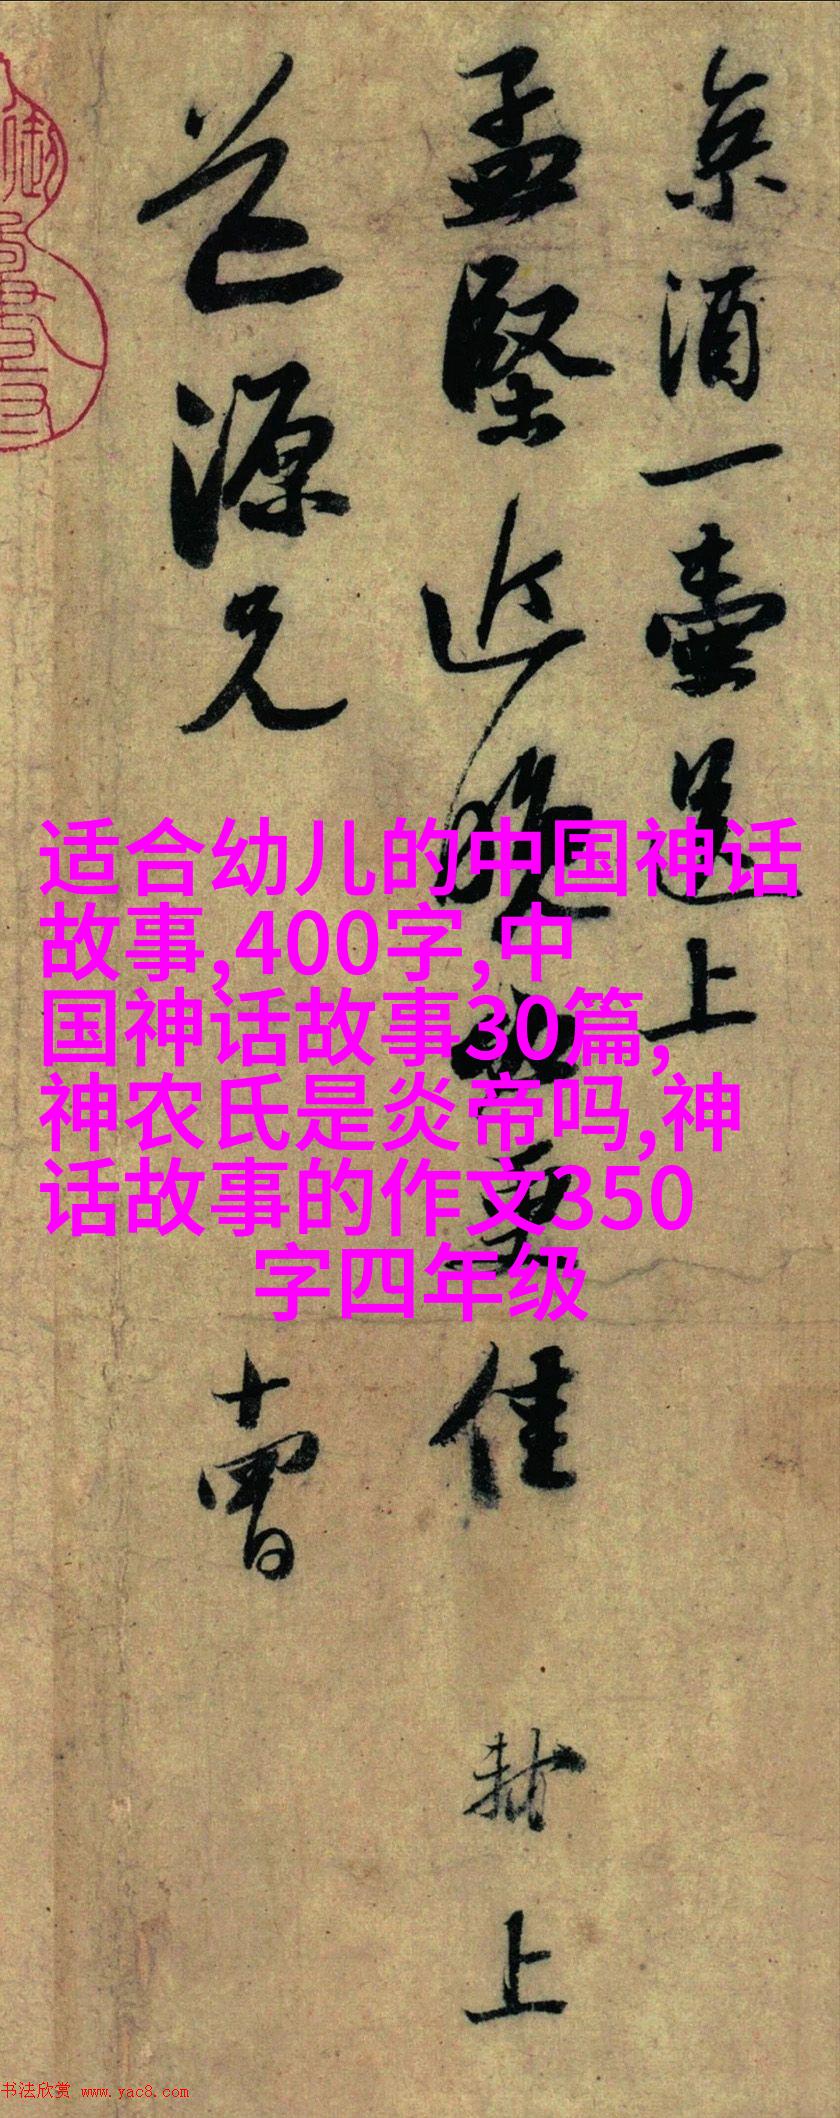 京酒一壺送上
孟堅近晚 佳
上
源兄
适合幼儿的中国神话
故事,400字,中
国神话故事30篇,
神农氏是炎帝吗,神
话故事的作文350
字四年级
书法欣赏 www.yac8.com